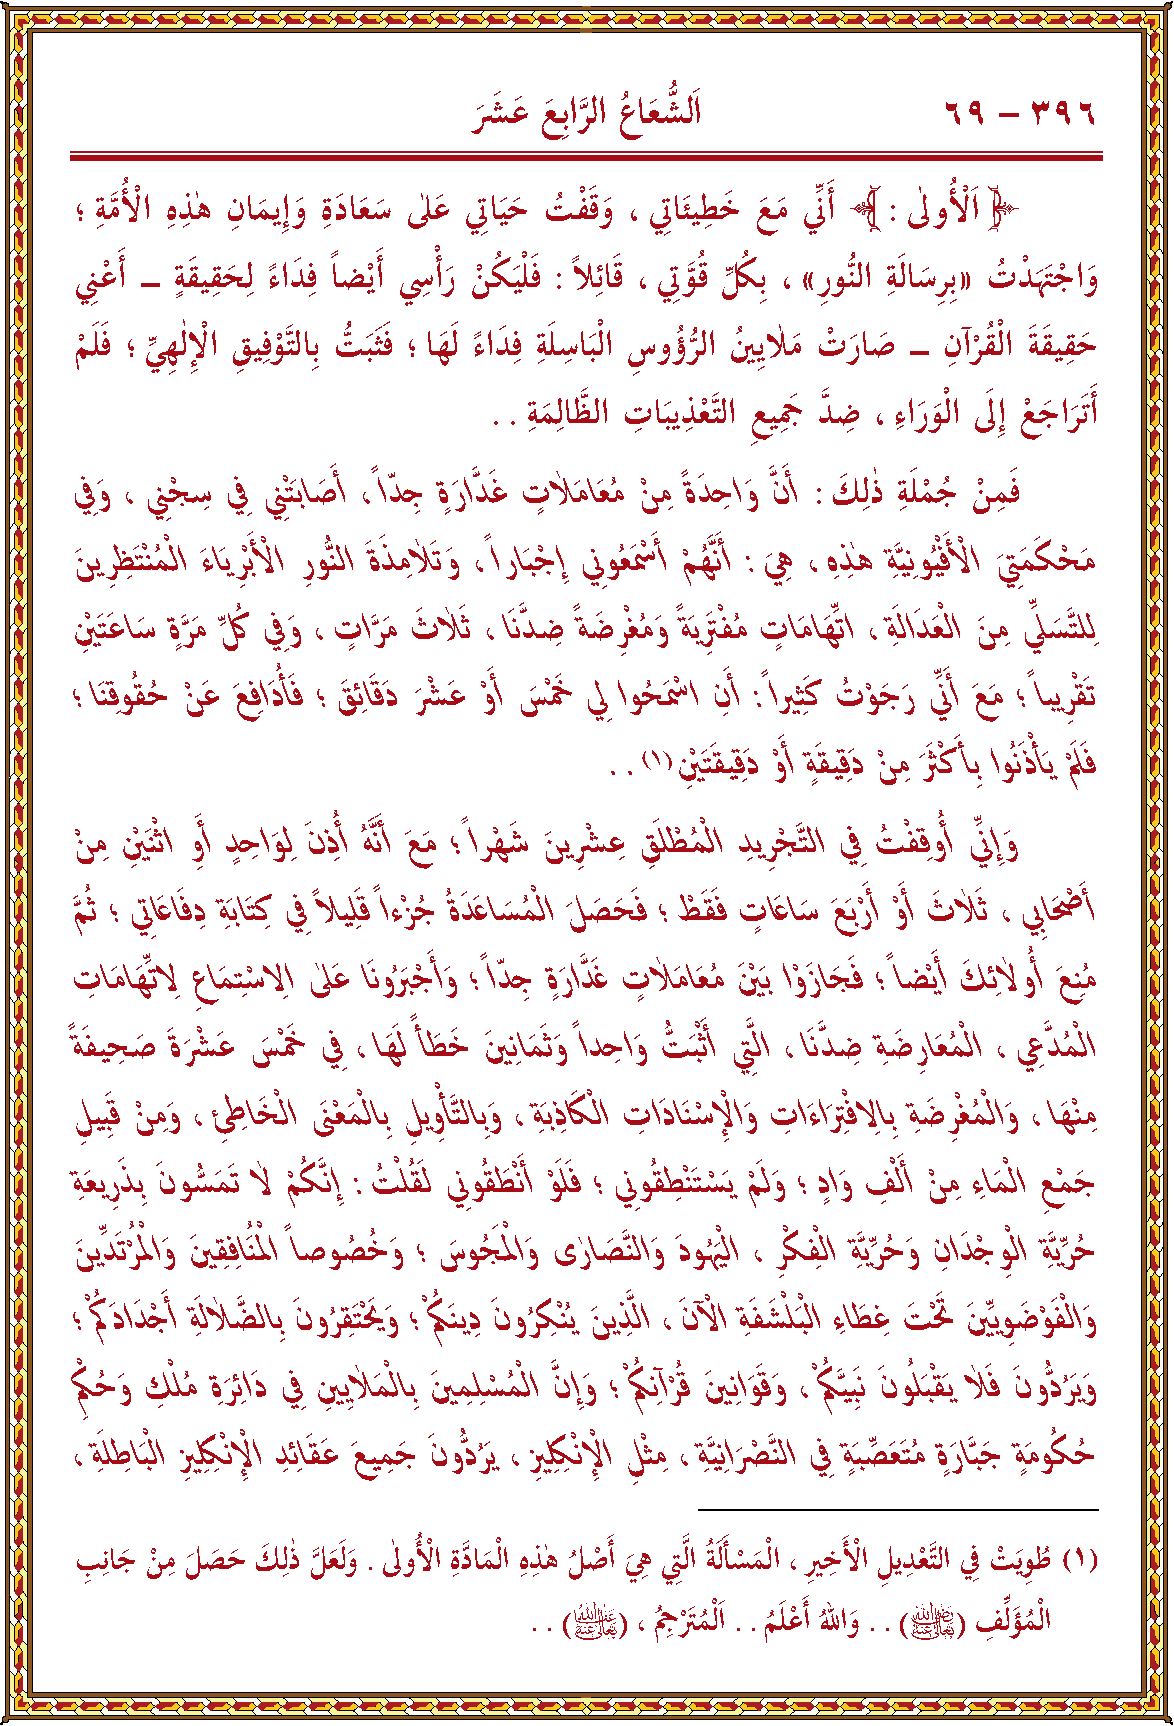 ٣٩٦ – ٦٩ اَلشُّعَاعُ الرَّابِعَ عَشَرَ
﴿ اَلْأُولٰى : ﴾ أَنِّي مَعَ خَطِيئَاتِي ، وَقَفْتُ حَيَاتِي عَلٰى سَعَادَةِ وَإِيمَانِ هٰذِهِ الْأُمَّةِ ؛
وَاجْتَهَدْتُ «بِرِسَالَةِ النُّورِ» ، بِكُلِّ قُوَّتِي ، قَائِلاً : فَلْيَكُنْ رَأْسِي أَيْضاً فِدَاءً لِحَقِيقَةٍ – أَعْنِي
حَقِيقَةَ الْقُرْآنِ – صَارَتْ مَلَايِينُ الرُّؤُوسِ الْبَاسِلَةِ فِدَاءً لَهَا ؛ فَثَبَتُّ بِالتَّوْفِيقِ الْإِلٰهِيِّ ؛ فَلَمْ
أَتَرَاجَعْ إِلَى الْوَرَاءِ ، ضِدَّ جَمِيعِ التَّعْذِيبَاتِ الظَّالِمَةِ . .
فَمِنْ جُمْلَةِ ذٰلِكَ : أَنَّ وَاحِدَةً مِنْ مُعَامَلَاتٍ غَدَّارَةٍ جِدّاً ، أَصَابَتْنِي فِي سِجْنِي ، وَفِي
مَحْكَمَتِيَ الْأَفْيُونِيَّةِ هٰذِهِ ، هِيَ : أَنَّهُمْ أَسْمَعُونِي إِجْبَاراً ، وَتَلَامِذَةَ النُّورِ الْأَبْرِيَاءَ الْمُنْتَظِرِينَ
لِلتَّسَلِّي مِنَ الْعَدَالَةِ ، اتِّهَامَاتٍ مُفْتَرِيَةً وَمُغْرِضَةً ضِدَّنَا ، ثَلَاثَ مَرَّاتٍ ، وَفِي كُلِّ مَرَّةٍ سَاعَتَيْنِ
تَقْرِيباً ؛ مَعَ أَنِّي رَجَوْتُ كَثِيراً : أَنِ اسْمَحُوا لِي خَمْسَ أَوْ عَشْرَ دَقَائِقَ ؛ فَأُدَافِعَ عَنْ حُقُوقِنَا ؛
فَلَمْ يَأْذَنُوا بِأَكْثَرَ مِنْ دَقِيقَةٍ أَوْ دَقِيقَتَيْنِ (١) . .
وَإِنِّي أُوقِفْتُ فِي التَّجْرِيدِ الْمُطْلَقِ عِشْرِينَ شَهْراً ؛ مَعَ أَنَّهُ أُذِنَ لِوَاحِدٍ أَوِ اثْنَيْنِ مِنْ
أَصْحَابِي ، ثَلَاثَ أَوْ أَرْبَعَ سَاعَاتٍ فَقَطْ ؛ فَحَصَلَ الْمُسَاعَدَةُ جُزْءاً قَلِيلاً فِي كِتَابَةِ دِفَاعَاتِي ؛ ثُمَّ
مُنِعَ أُولٰئِكَ أَيْضاً ؛ فَجَازَوْا بَيْنَ مُعَامَلَاتٍ غَدَّارَةٍ جِدّاً ؛ وَأَجْبَرُونَا عَلٰى الِاسْتِمَاعِ لِاتِّهَامَاتِ
الْمُدَّعِي ، الْمُعَارِضَةِ ضِدَّنَا ، الَّتِي أَثْبَتُّ وَاحِداً وَثَمَانِينَ خَطَأً لَهَا ، فِي خَمْسَ عَشْرَةَ صَحِيفَةً
مِنْهَا ، وَالْمُغْرِضَةِ بِالِافْتِرَاءَاتِ وَالْإِسْنَادَاتِ الْكَاذِبَةِ ، وَبِالتَّأْوِيلِ بِالْمَعْنَى الْخَاطِئِ ، وَمِنْ قَبِيلِ
جَمْعِ الْمَاءِ مِنْ أَلْفِ وَادٍ ؛ وَلَمْ يَسْتَنْطِقُونِي ؛ فَلَوْ أَنْطَقُونِي لَقُلْتُ : إِنَّكُمْ لَا تَمَسُّونَ بِذَرِيعَةِ
حُرِّيَّةِ الْوِجْدَانِ وَحُرِّيَّةِ الْفِكْرِ ، الْيَهُودَ وَالنَّصَارٰى وَالْمَجُوسَ ؛ وَخُصُوصاً الْمُنَافِقِينَ وَالْمُرْتَدِّينَ
وَالْفَوْضَوِيِّينَ تَحْتَ غِطَاءِ الْبَلْشَفَةِ الْآنَ ، الَّذِينَ يُنْكِرُونَ دِينَكُمْ ؛ وَيَحْتَقِرُونَ بِالضَّلَالَةِ أَجْدَادَكُمْ ؛
وَيَرُدُّونَ فَلَا يَقْبَلُونَ نَبِيَّكُمْ ، وَقَوَانِينَ قُرْآنِكُمْ ؛ وَإِنَّ الْمُسْلِمِينَ بِالْمَلَايِينِ فِي دَائِرَةِ مُلْكِ وَحُكْمِ
حُكُومَةٍ جَبَّارَةٍ مُتَعَصِّبَةٍ فِي النَّصْرَانِيَّةِ ، مِثْلِ الْإِنْكِلِيزِ ، يَرُدُّونَ جَمِيعَ عَقَائِدِ الْإِنْكِلِيزِ الْبَاطِلَةِ ،
(١) طُوِيَتْ فِي التَّعْدِيلِ الْأَخِيرِ ، الْمَسْأَلَةُ الَّتِي هِيَ أَصْلُ هٰذِهِ الْمَادَّةِ الْأُولٰى . وَلَعَلَّ ذٰلِكَ حَصَلَ مِنْ جَانِبِ
الْمُؤَلِّفِ () . . وَاللهُ أَعْلَمُ . . اَلْمُتَرْجِمُ ، () . .